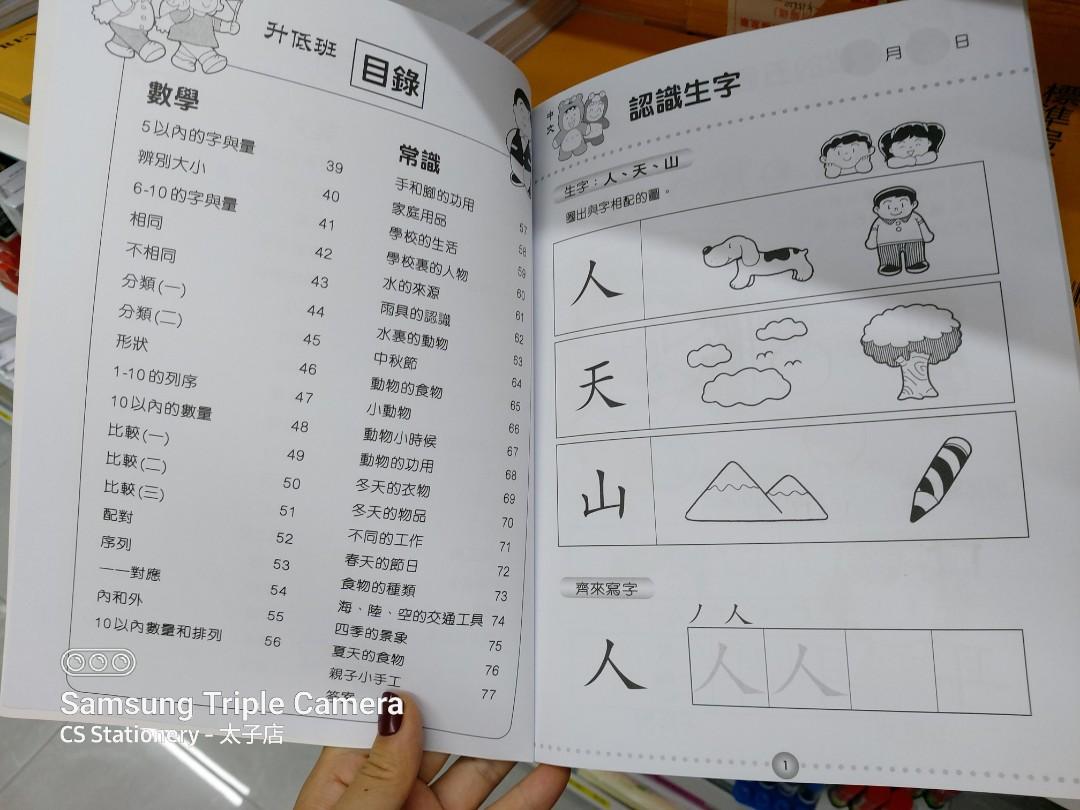 升低班 目錄
數學
5以內的字與量 39
辨別大小 40
6-10的字與量 41
相同 42
不相同 43
分類(一) 44
分類(二) 45
形狀 46
1-10的列序 47
10以內的數量 48
比較(一) 49
比較(二) 50
比較(三) 51
配對 52
序列 53
一一對應 54
內和外 55
10以內數量和排列 56
常識
手和腳的功用 57
家庭用品 58
學校的生活 59
學校裏的人物 60
水的來源 61
雨具的認識 62
水裏的動物 63
中秋節 64
動物的食物 65
小動物 66
動物小時候 67
動物的功用 68
冬天的衣物 69
冬天的物品 70
不同的工作 71
春天的節日 72
食物的種類 73
海、陸、空的交通工具 74
四季的景象 75
夏天的食物 76
親子小手工 77
答案
月 日
中文
認識生字
生字：人、天、山
圈出與字相配的圖。
人
天
山
齊來寫字
丿 人
人 人 人
1
Samsung Triple Camera
CS Stationery - 太子店